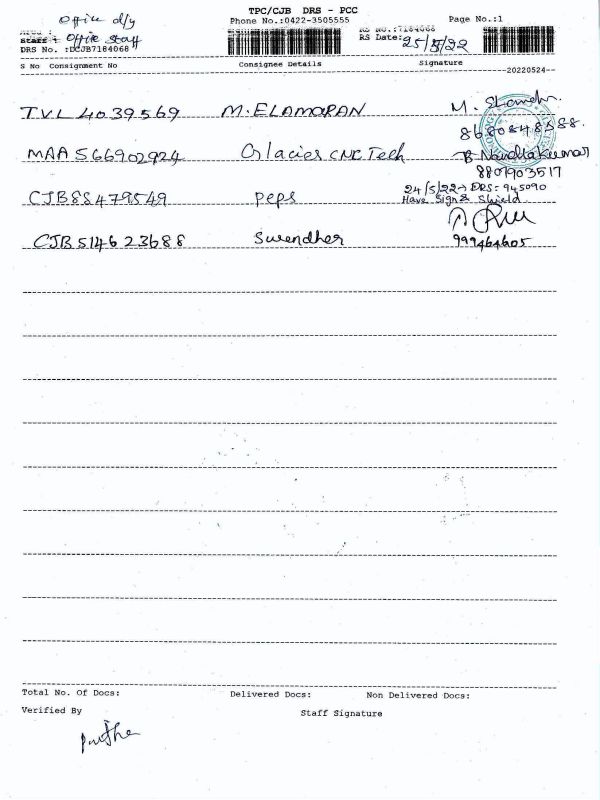 TPC/CJB DRS - PCC
Office d/y
Phone No.:0422-3505555
Page No.:1
Staff : Office Staff
RS NO.:7184068
DRS No. :DCJB7184068
RS Date: 25/5/22
S No Consignment No Consignee Details Signature
20220524
TVL 4039569 M. ELAMARAN M.
8680848588.
MAA 566902924 Glacies CNC Tech B. Nandhakumar
8801903517
CJB88479549 peps 24/5/22 DRS: 945090
Have Sign & Shield
CJB 514623688 Surendher
999464605
Total No. Of Docs: Delivered Docs: Non Delivered Docs:
Verified By Staff Signature